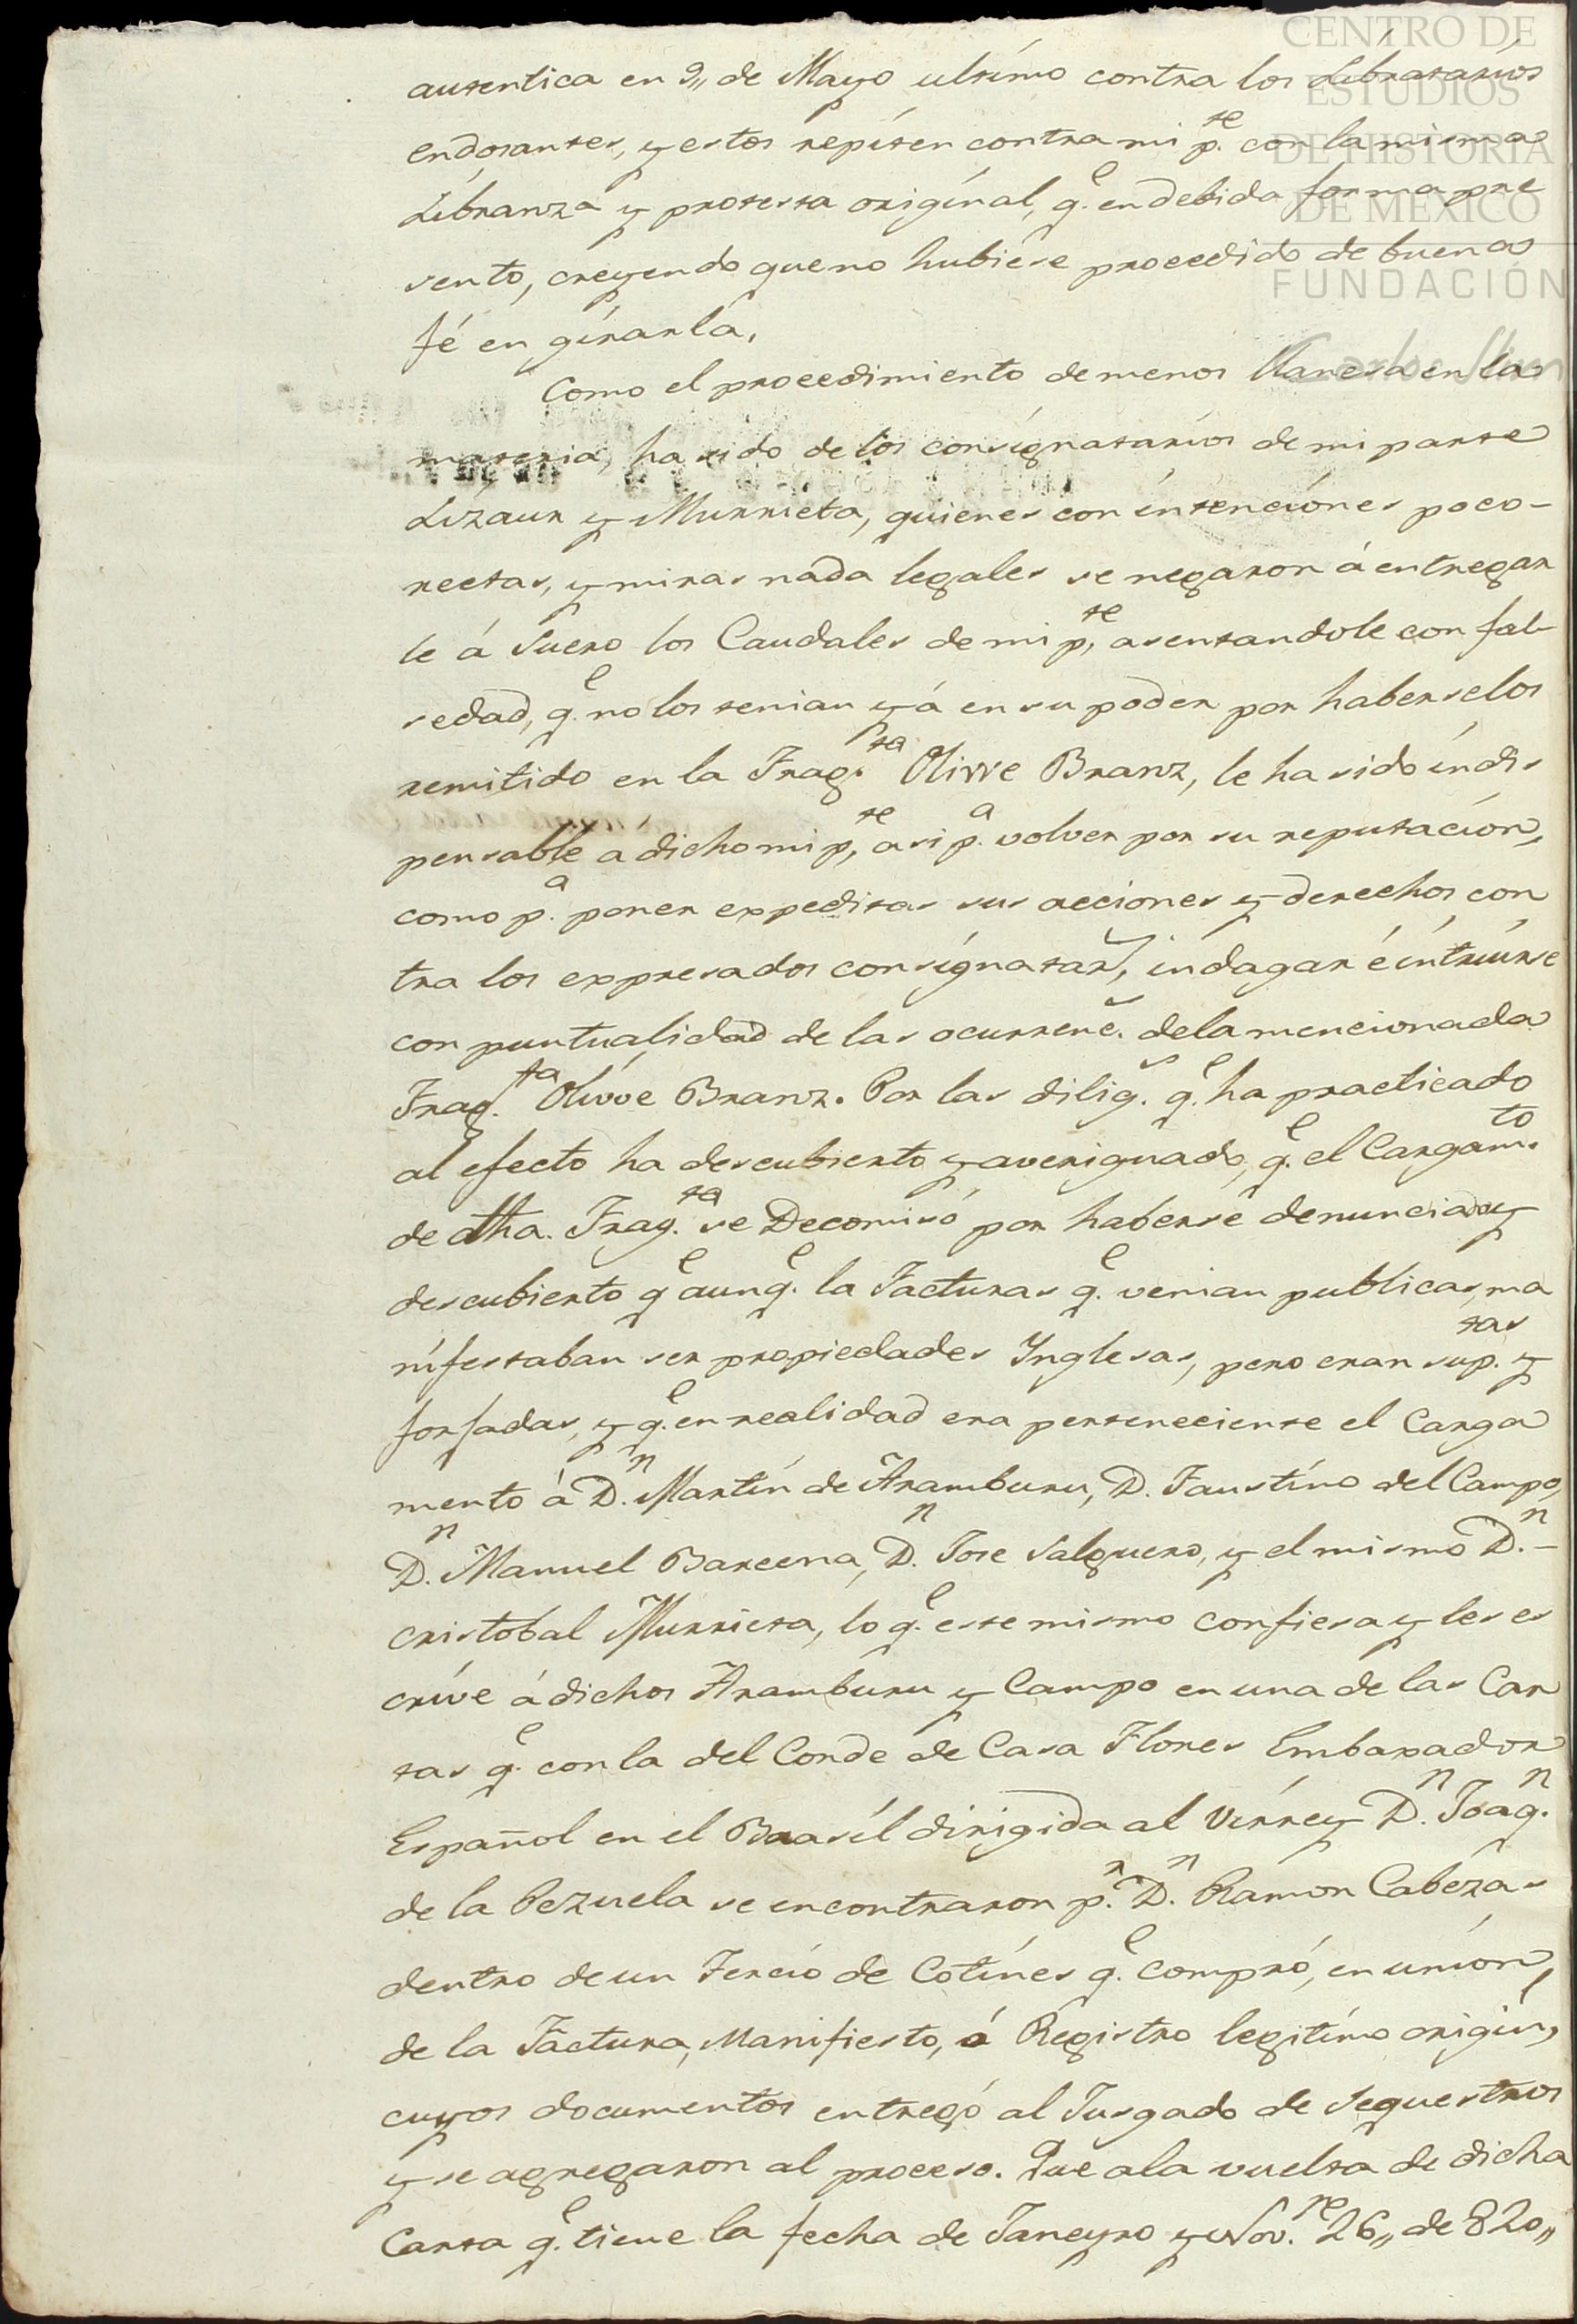 CENTRO DE
ESTUDIOS
DE HISTORIA
DE MEXICO
FUNDACIÓN
Carlos Slim
autentica en 9,, de Mayo ultimo contra los Libratarios
endosantes, y estos repiten contra mi p.te con la misma
Libranza y protesta original, q.e en debida forma pre
sento, creyendo que no hubiese procedido de buena
fé en girarla.
Como el procedimiento de menos llaneza en la
materia, ha sido de los consignatarios de mi parte
Lizaur y Murrieta, quienes con intenciones poco-
rectas, y miras nada legales se negaron á entregar
le á Suero los Caudales de mi p.te, asentandole con fal-
sedad, q.e no los tenian yá en su poder por haberselos
remitido en la Frag.ta Olivve Branz, le ha sido indis
pensable a dicho mi p.te, asi p.a volver por su reputacion,
como p.a poner expeditas sus acciones y derechos con
tra los expresados consignatar.s, indagar é intruirse
con puntualidad de las ocurrenc.s de la mencionada
Frag.ta Olivve Branz. Por las dilig.s q.e ha practicado
al efecto ha descubierto y averiguado, q.e el Cargam.to
de dha. Frag.ta se Decomisó por haberse denunciado y
descubierto q.e aunq.e la Facturas q.e venian publicas, ma
nifestaban ser propiedades Ynglesas, pero eran sup.tas y
forjadas, y q.e en realidad era perteneciente el Carga
mento á D.n Martin de Aramburu, D. Faustino del Campo,
D.n Manuel Barcena, D.n Jose Salguero, y el mismo D.n-
Cristobal Murrieta, lo q.e este mismo confiesa y les es
crive á dichos Aramburu y Campo en una de las Car
tas q.e con la del Conde de Casa Flores Embaxador
Español en el Brasil dirigida al Virrey D.n Joaq.n
de la Pezuela se encontraron p.r D.n Ramon Cabezas
dentro de un Tercio de Cotines q.e compró, en union,
de la Factura, Manifiesto, ó Registro legitimo origin,
cuyos documentos entregó al Jusgado de Sequestros
y se agregaron al proceso. Que ala vuelta de dicha
Carta q.e tiene la fecha de Janeyro y Nov.re 26,, de 820,,